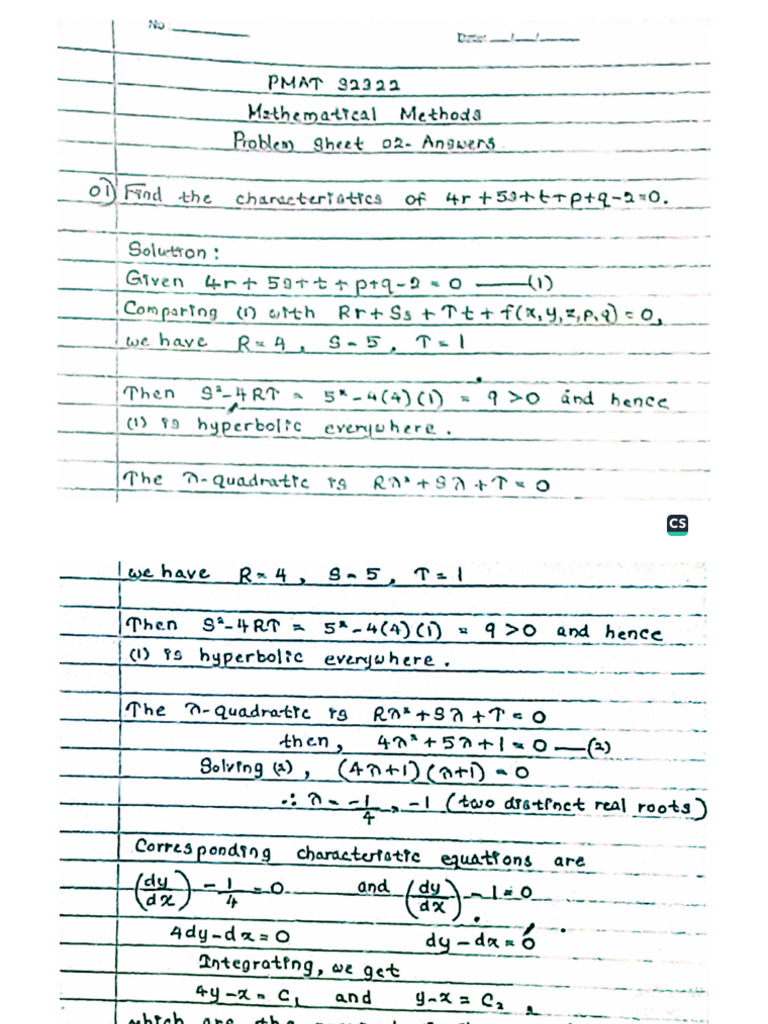 No
Date: / /
PMAT 32322
Mathematical Methods
Problem Sheet 02- Answers
01) Find the characteristics of 4r + 5s + t + p + q - 2 = 0.
Solution :
Given 4r + 5s + t + p + q - 2 = 0 —(1)
Comparing (1) with Rr + Ss + Tt + f(x, y, z, p, q) = 0,
we have R = 4 , S = 5 , T = 1
Then S² - 4RT = 5² - 4(4)(1) = 9 > 0 and hence
(1) is hyperbolic everywhere .
The λ-quadratic is Rλ² + Sλ + T = 0
CS
we have R = 4 , S = 5 , T = 1
Then S² - 4RT = 5² - 4(4)(1) = 9 > 0 and hence
(1) is hyperbolic everywhere .
The λ-quadratic is Rλ² + Sλ + T = 0
then, 4λ² + 5λ + 1 = 0 —(2)
Solving (2) , (4λ+1)(λ+1) = 0
∴ λ = -1/4 , -1 (two distinct real roots)
Corresponding characteristic equations are
(dy/dx) - 1/4 = 0 and (dy/dx) - 1 = 0
4dy - dx = 0 dy - dx = 0
Integrating, we get
4y - x = C₁ and y - x = C₂ ,
which are the